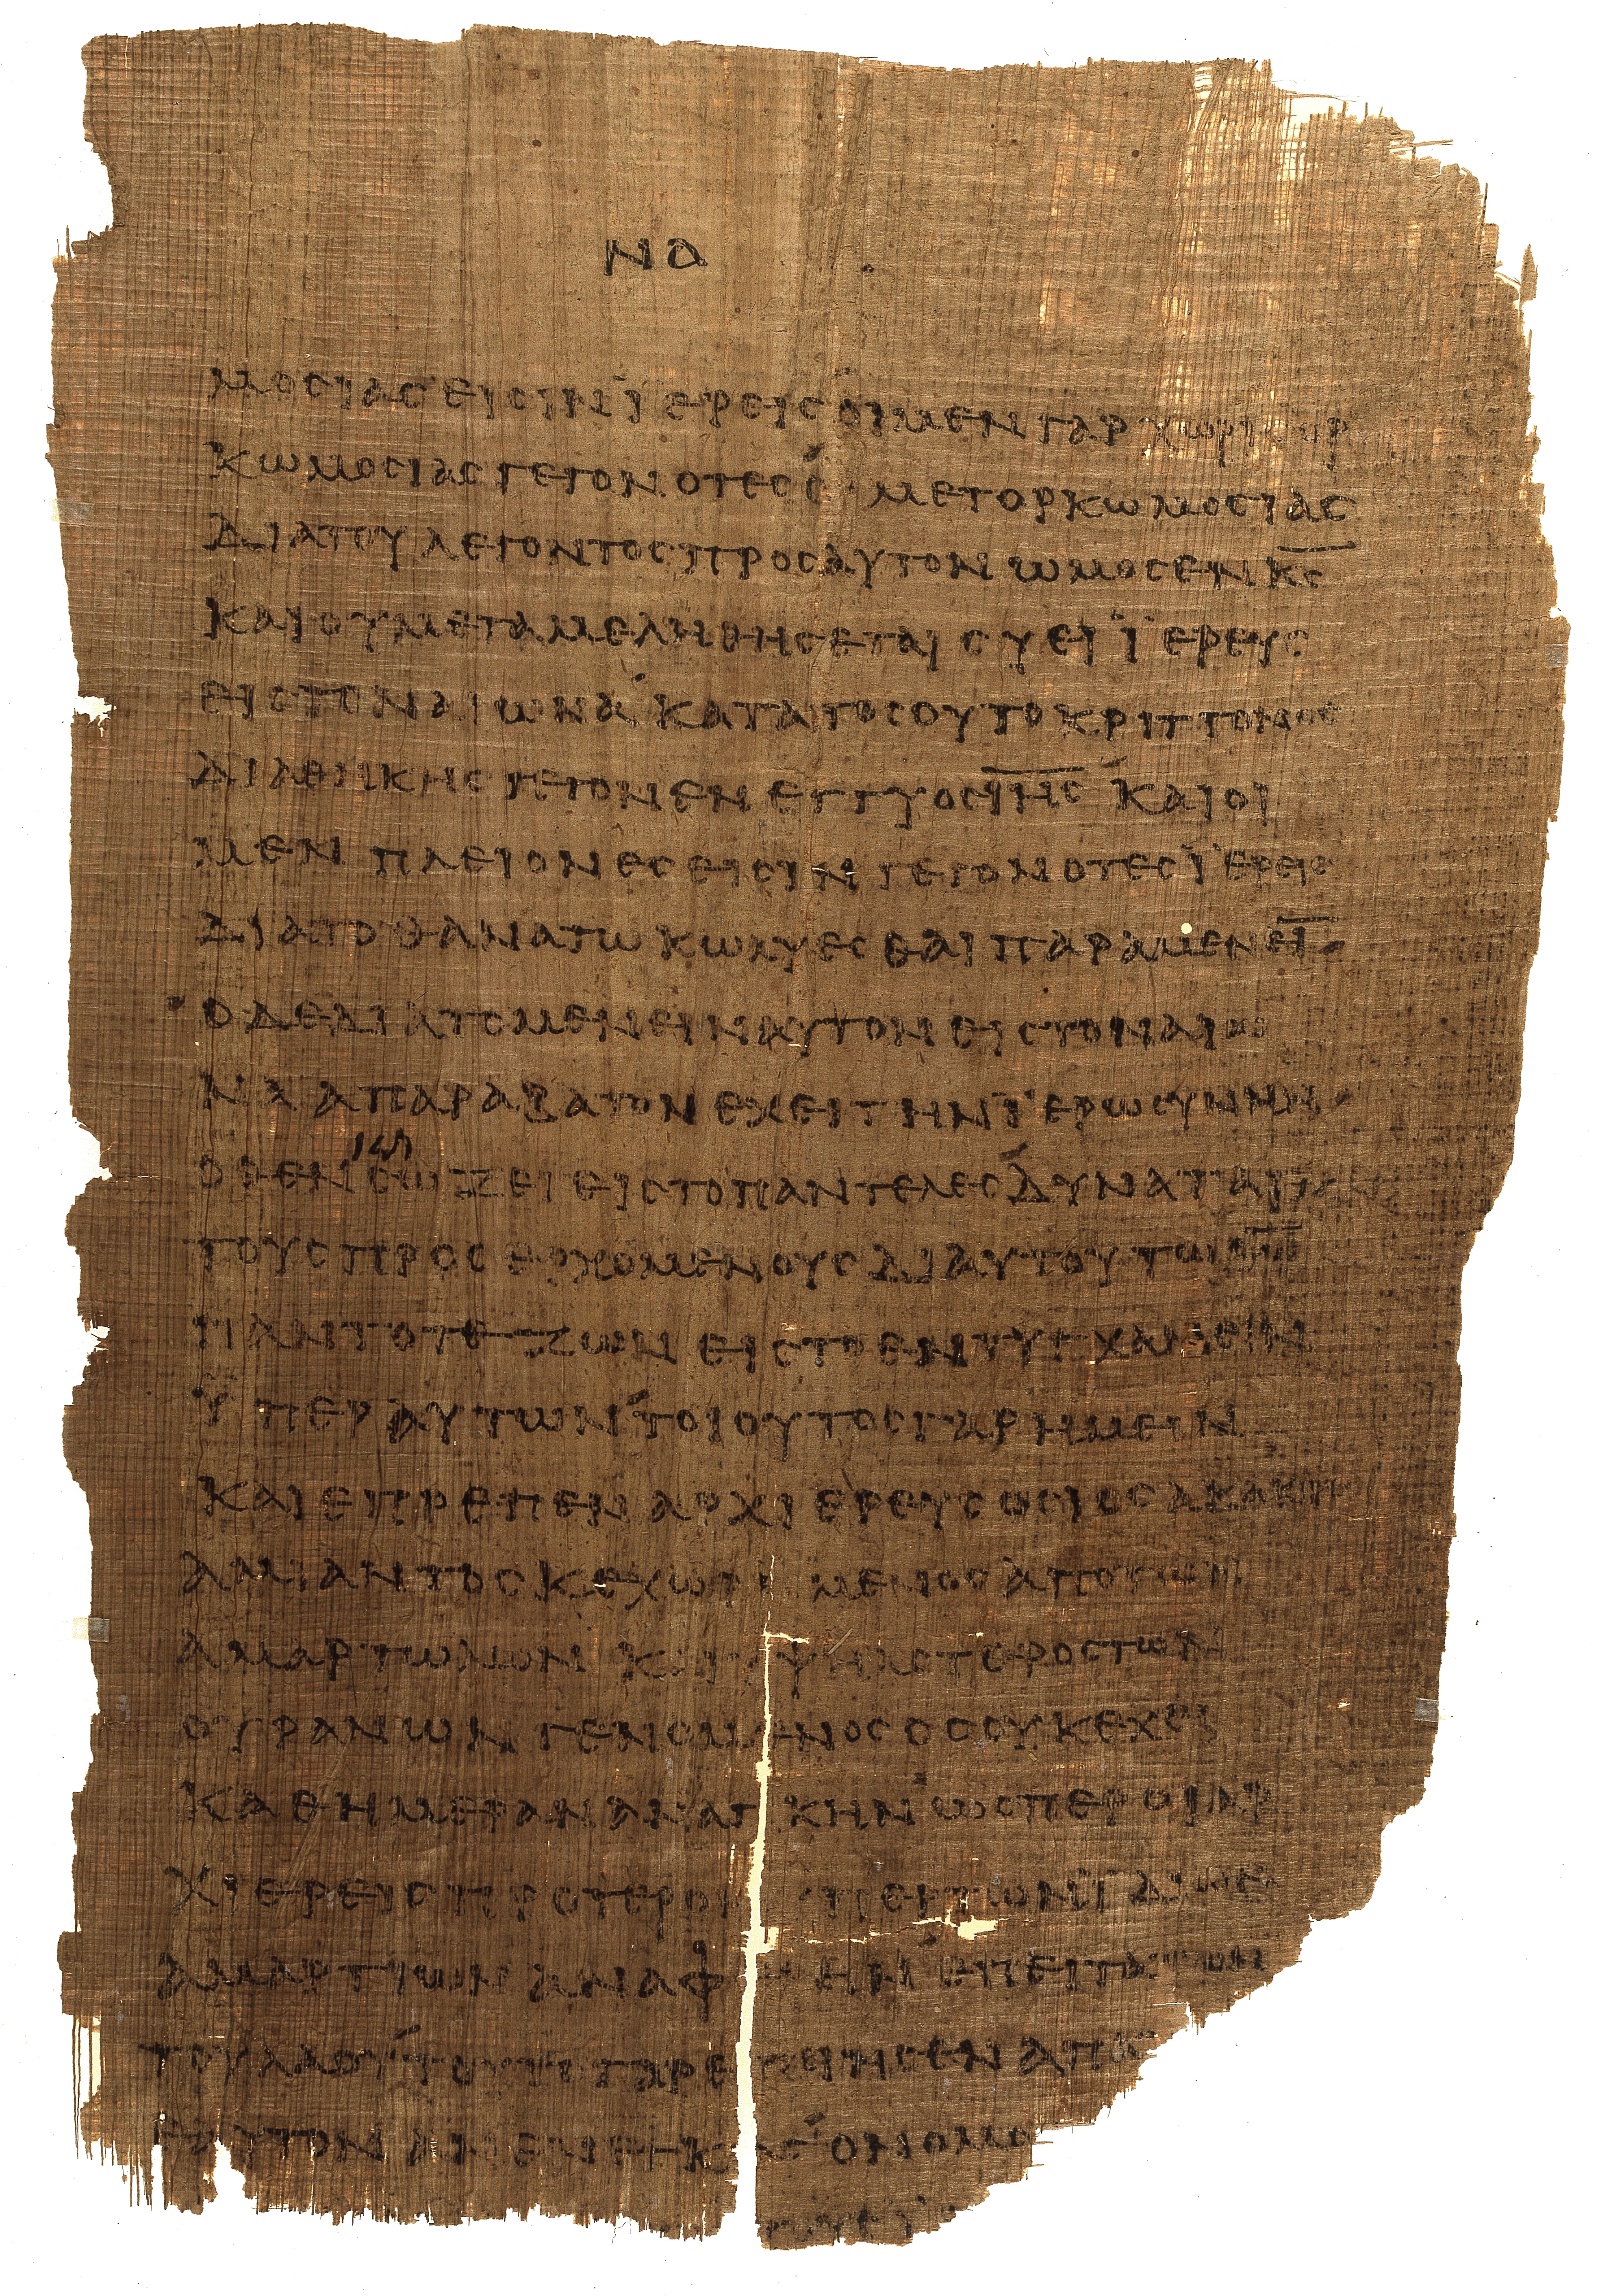 ΝΑ
ΜΟΣΙΑΣ ΕΙΣΙΝ ΪΕΡΕΙΣ ΟΙ ΜΕΝ ΓΑΡ ΧΩΡΙΣ ΟΡ
ΚΩΜΟΣΙΑΣ ΓΕΓΟΝΟΤΕΣ Ο ΜΕΤ ΟΡΚΩΜΟΣΙΑΣ
ΔΙΑ ΤΟΥ ΛΕΓΟΝΤΟΣ ΠΡΟΣ ΑΥΤΟΝ ΩΜΟΣΕΝ Κ̅Σ̅
ΚΑΙ ΟΥ ΜΕΤΑΜΕΛΗΘΗΣΕΤΑΙ ΣΥ ΕΙ ΪΕΡΕΥΣ
ΕΙΣ ΤΟΝ ΑΙΩΝΑ ΚΑΤΑ ΤΟΣΟΥΤΟ ΚΡΙΤΤΟΝΟΣ
ΔΙΑΘΗΚΗΣ ΓΕΓΟΝΕΝ ΕΓΓΥΟΣ Ι̅Η̅Σ̅ ΚΑΙ ΟΙ
ΜΕΝ ΠΛΕΙΟΝΕΣ ΕΙΣΙΝ ΓΕΓΟΝΟΤΕΣ ΪΕΡΕΙΣ
ΔΙΑ ΤΟ ΘΑΝΑΤΩ ΚΩΛΥΕΣΘΑΙ ΠΑΡΑΜΕΝΕΙ̅
Ο ΔΕ ΔΙΑ ΤΟ ΜΕΝΕΙΝ ΑΥΤΟΝ ΕΙΣ ΤΟΝ ΑΙΩ
ΝΑ ΑΠΑΡΑΒΑΤΟΝ ΕΧΕΙ ΤΗΝ ΪΕΡΩΣΥΝΗΝ
ΟΘΕΝ ΣΩΖΕΙ ΕΙΣ ΤΟ ΠΑΝΤΕΛΕΣ ΔΥΝΑΤΑΙ
ΤΟΥΣ ΠΡΟΣΕΡΧΟΜΕΝΟΥΣ ΔΙ ΑΥΤΟΥ ΤΩ Θ̅Ω̅
ΠΑΝΤΟΤΕ ΖΩΝ ΕΙΣ ΤΟ ΕΝΤΥΓΧΑΝΕΙΝ
ΫΠΕΡ ΑΥΤΩΝ ΤΟΙΟΥΤΟΣ ΓΑΡ ΗΜΕΙΝ
ΚΑΙ ΕΠΡΕΠΕΝ ΑΡΧΙΕΡΕΥΣ ΟΣΙΟΣ ΑΚΑΚΟΣ
ΑΜΙΑΝΤΟΣ ΚΕΧΩΡΙ ΜΕΝΟΣ ΑΠΟ ΤΩΝ
ΑΜΑΡΤΩΛΩΝ ΚΑΙ ΥΨΗΛΟΤΕΡΟΣ ΤΩΝ
ΟΥΡΑΝΩΝ ΓΕΝΟΜΕΝΟΣ ΟΣ ΟΥΚ ΕΧΕΙ
ΚΑΘ ΗΜΕΡΑΝ ΑΝΑΓΚΗΝ ΩΣΠΕΡ ΟΙ ΑΡ
ΧΙΕΡΕΙΣ ΠΡΟΤΕΡΟΝ ΥΠΕΡ ΤΩΝ ΪΔΙΩΝ
ΑΜΑΡΤΙΩΝ ΑΝΑΦ ΕΙΝ ΕΠΕΙΤΑ ΤΩΝ
ΤΟΥ ΛΑΟΥ ΤΟΥΤΟ ΓΑΡ ΕΠΟΙΗΣΕΝ ΑΠΑ
ΕΑΥΤΟΝ ΑΝΕΝΕΓΚΑΣ Ο ΝΟΜΟ